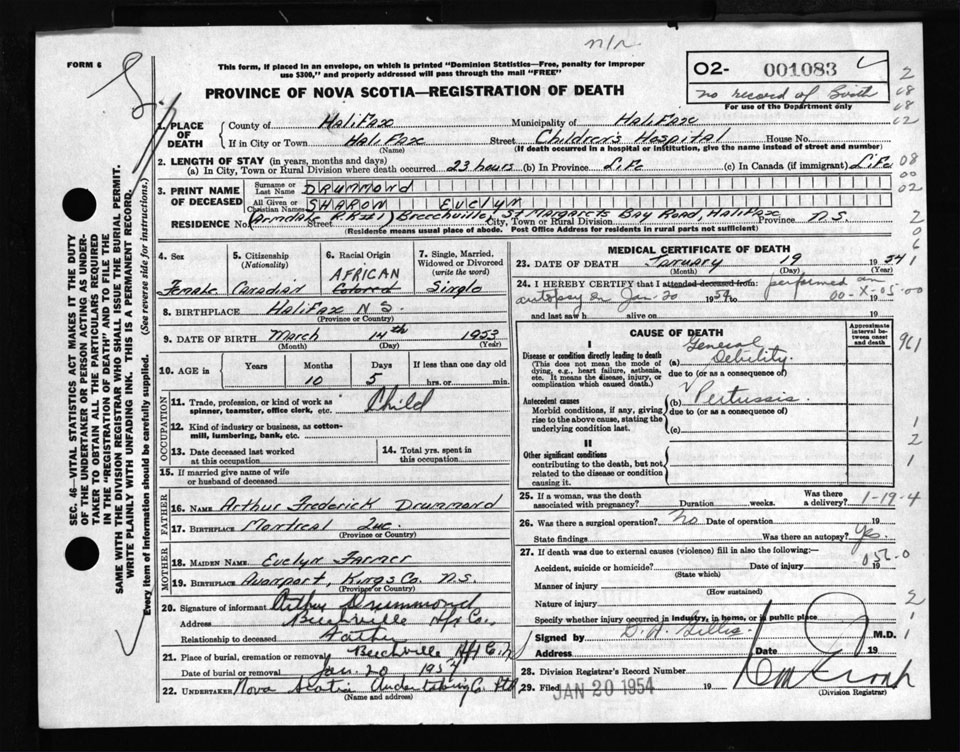 n/r
FORM 6
This form, if placed in an envelope, on which is printed "Dominion Statistics—Free, penalty for improper
use $300," and properly addressed will pass through the mail "FREE"
O2- 001083
no record of birth
For use of the Department only
PROVINCE OF NOVA SCOTIA—REGISTRATION OF DEATH
1. PLACE OF DEATH
County of Halifax Municipality of Halifax
If in City or Town Halifax Street Children's Hospital House No.
(Name) (If death occurred in a hospital or institution, give the name instead of street and number)
2. LENGTH OF STAY (in years, months and days)
(a) In City, Town or Rural Division where death occurred 23 hours (b) In Province Life (c) In Canada (if immigrant) Life
3. PRINT NAME OF DECEASED
Surname or Last Name DRUMMOND
All Given or Christian Names SHARON EVELYN
RESIDENCE No. (Armdale R.R#1) Breechville, St Margarets Bay Road, Halifax Province N.S
Street City, Town or Rural Division
(Residence means usual place of abode. Post Office Address for residents in rural parts not sufficient)
4. Sex Female
5. Citizenship (Nationality) Canadian
6. Racial Origin AFRICAN Colored
7. Single, Married, Widowed or Divorced (write the word) Single
8. BIRTHPLACE Halifax N.S.
(Province or Country)
9. DATE OF BIRTH March 14th 1953
(Month) (Day) (Year)
10. AGE in Years Months 10 Days 5 If less than one day old hrs. or min.
OCCUPATION
11. Trade, profession, or kind of work as spinner, teamster, office clerk, etc. Child
12. Kind of industry or business, as cotton-mill, lumbering, bank, etc.
13. Date deceased last worked at this occupation
14. Total yrs. spent in this occupation
15. If married give name of wife or husband of deceased
FATHER
16. NAME Arthur Frederick Drummond
17. BIRTHPLACE Montreal Que.
(Province or Country)
MOTHER
18. MAIDEN NAME Evelyn Farmer
19. BIRTHPLACE Avonport, Kings Co. N.S.
(Province or Country)
20. Signature of informant Arthur Drummond
Address Beechville Hfx Co.
Relationship to deceased Father
21. Place of burial, cremation or removal Beechville Hfx Co.
Date of burial or removal Jan. 20 1954
22. UNDERTAKER Nova Scotia Undertaking C. Ltd
MEDICAL CERTIFICATE OF DEATH
23. DATE OF DEATH January 19 1954
(Month) (Day) (Year)
24. I HEREBY CERTIFY that I attended deceased from: performed an
autopsy on Jan 20 1954 to 00-X-05-00 19
and last saw h alive on 19
CAUSE OF DEATH
Approximate interval between onset and death
I
Disease or condition directly leading to death
(This does not mean the mode of dying, e.g., heart failure, asthenia, etc. It means the disease, injury, or complication which caused death.)
(a) General Debility
due to (or as a consequence of)
Antecedent causes
Morbid conditions, if any, giving rise to the above cause, stating the underlying condition last.
(b) Pertussis
due to (or as a consequence of)
(c)
II
Other significant conditions
contributing to the death, but not related to the disease or condition causing it.
25. If a woman, was the death associated with pregnancy? Duration weeks. Was there a delivery? 1-19-4
26. Was there a surgical operation? No Date of operation 19
State findings Was there an autopsy? Yes.
27. If death was due to external causes (violence) fill in also the following:—
Accident, suicide or homicide? Date of injury 19
(State which)
056-0
Manner of injury
(How sustained)
Nature of injury
Specify whether injury occurred in industry, in home, or in public place
Signed by D. A. Gillis M.D.
Address Date 19
28. Division Registrar's Record Number
29. Filed JAN 20 1954 19
(Division Registrar)
SEC. 46—VITAL STATISTICS ACT MAKES IT THE DUTY
OF THE UNDERTAKER OR PERSON ACTING AS UNDER-
TAKER TO OBTAIN ALL THE PARTICULARS REQUIRED
IN THE "REGISTRATION OF DEATH" AND TO FILE THE
SAME WITH THE DIVISION REGISTRAR WHO SHALL ISSUE THE BURIAL PERMIT.
WRITE PLAINLY WITH UNFADING INK. THIS IS A PERMANENT RECORD.
Every item of information should be carefully supplied. (See reverse side for instructions.)